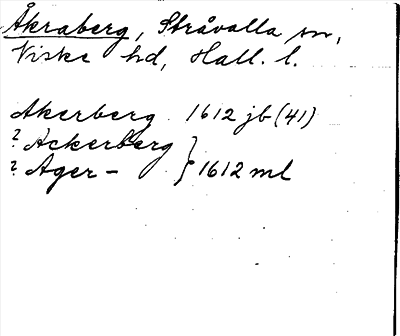 Åkraberg, Stråvalla sn,
Viske hd, Hall. l.
Akerberg 1612 jb (41)
? Ackerberg
? Ager – } 1612 ml